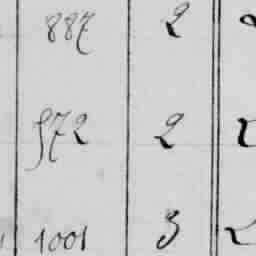 887 2
572 2
1001 3